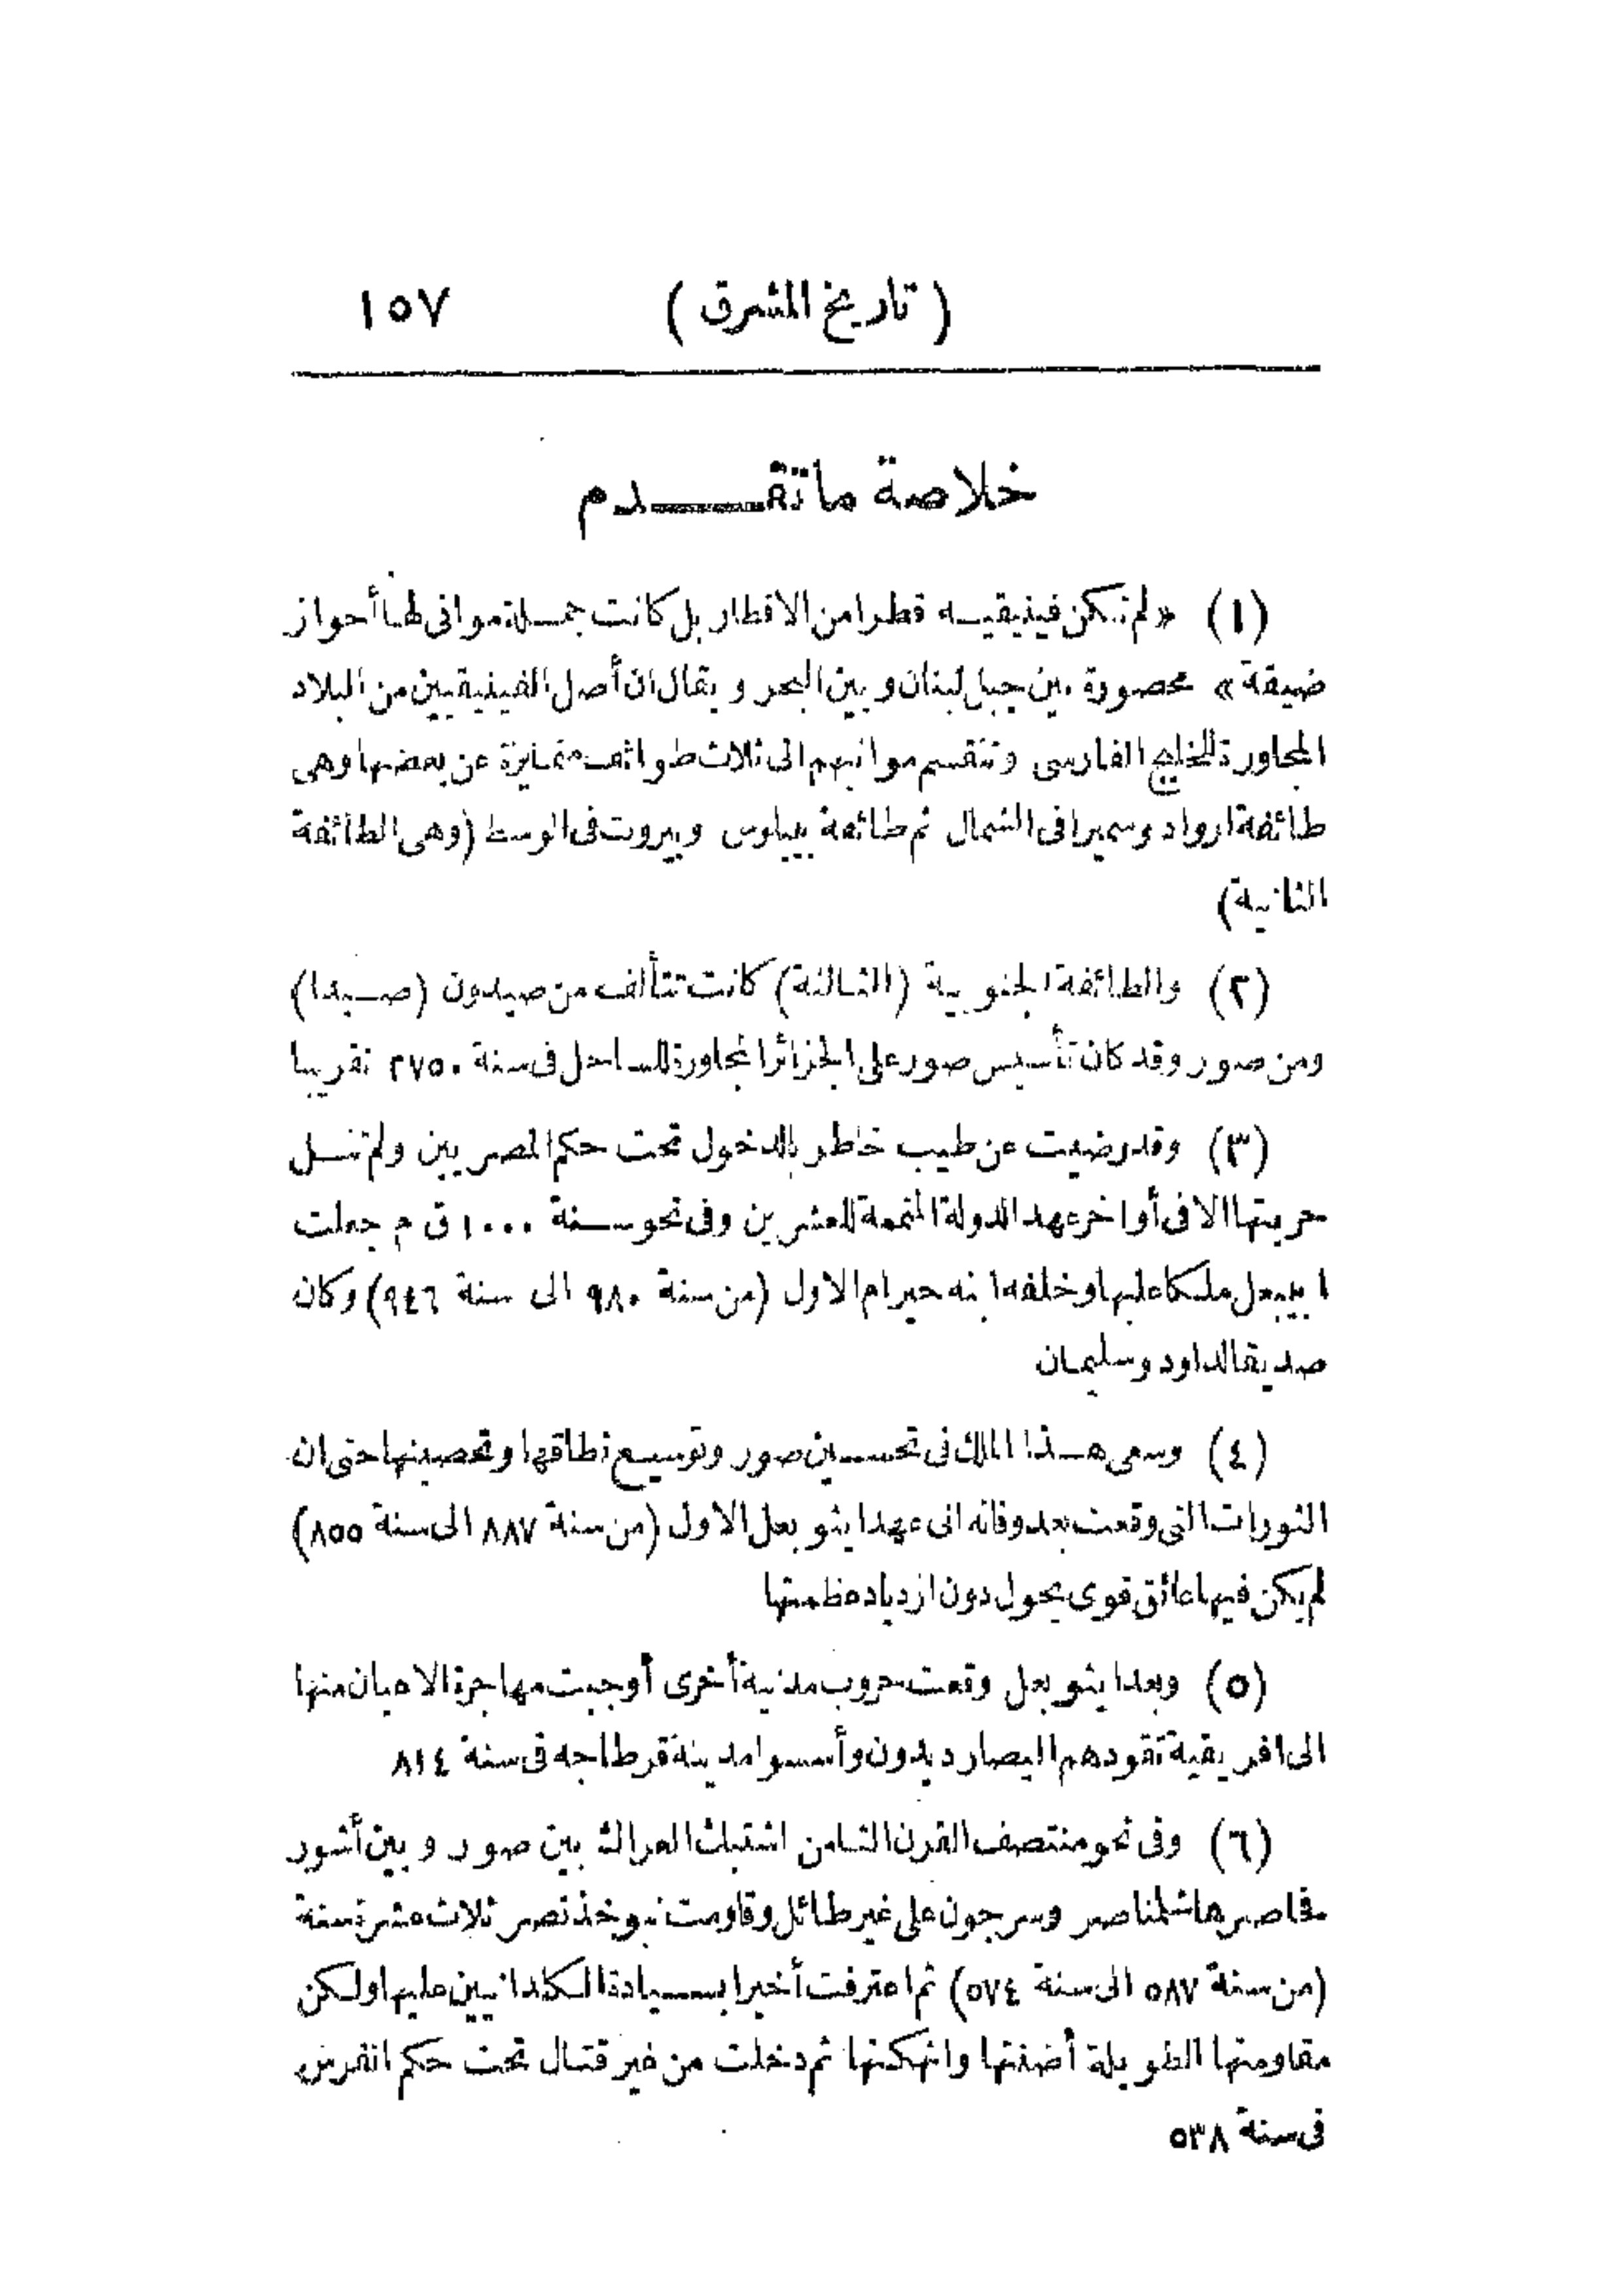 ( تاريخ المشرق ) ١٥٧
خلاصة ما تقدم
(١) «لم تكن فينيقيه قطرا من الاقطار بل كانت جملة موانى لها أحواز
ضيقة» محصورة بين جبل لبنان وبين البحر ويقال ان أصل الفينيقيين من البلاد
المجاورة للخليج الفارسى وتنقسم موانيهم الى ثلاث طوائف متمايزة عن بعضها وهى
طائفة ارواد وسميرا فى الشمال ثم طائفة بيبلوس وبيروت فى الوسط (وهى الطائفة
الثانية)
(٢) والطائفة الجنوبية (الثالثة) كانت تتألف من صيدون (صيدا)
ومن صور وقد كان تأسيس صور على الجزائر المجاورة للساحل فى سنة ٢٧٥٠ تقريبا
(٣) وقد رضيت عن طيب خاطر بالدخول تحت حكم المصريين ولم تنل
حريتها الا فى أواخر عهد الدولة المتممة للعشرين وفى نحو سنة ١٠٠٠ ق م جعلت
ابيبعل ملكا عليها وخلفه ابنه حيرام الاول (من سنة ٩٨٠ الى سنة ٩٤٦) وكان
صديقا لداود وسليمان
(٤) وسعى هذا الملك فى تحسين صور وتوسيع نطاقها وتحصينها حتى ان
الثورات التى وقعت بعد وفاته الى عهد ايثو بعل الاول (من سنة ٨٨٧ الى سنة ٨٥٥)
لم يكن فيها عائق قوى يحول دون ازدياد عظمتها
(٥) وبعد ايثو بعل وقعت حروب مدنية أخرى أوجبت مهاجرة الاعيان منها
الى افريقية تقودهم اليصار ديدون وأسسوا مدينة قرطاجه فى سنة ٨١٤
(٦) وفى نحو منتصف القرن الثامن اشتبك العراك بين صور وبين أشور
فاصرها شلمناصر وسرجون على غير طائل وقاومت نبوخذ نصر ثلاث عشرة سنة
(من سنة ٥٨٧ الى سنة ٥٧٤) ثم اعترفت أخيرا بسيادة الكلدانيين عليها ولكن
مقاومتها الطويلة أضنتها وانهكتها ثم دخلت من غير قتال تحت حكم الفرس
فى سنة ٥٣٨